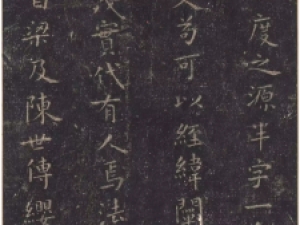 度之源半字一
苟可以經緯闡
茂實代有人焉法
自梁及陳世傳纓